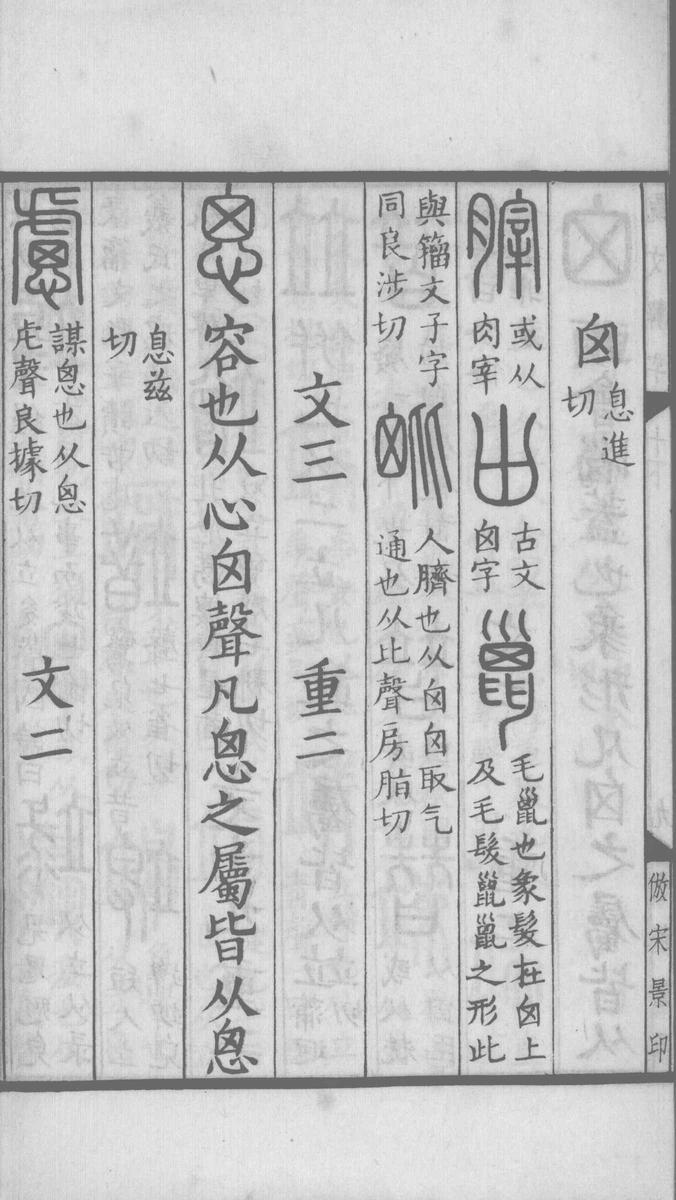 囟息進
切
𦞤或从
肉宰
𡴓古文
囟字
巤毛巤也象髮在囟上
及毛髮巤巤之形此
與籀文子字
同良涉切
𣬈人臍也从囟囟取气
通也从比聲房脂切
文三 重二
恖容也从心囟聲凡恖之屬皆从恖
息茲
切
慮謀恖也从恖
虍聲良據切
文二
倣宋景印